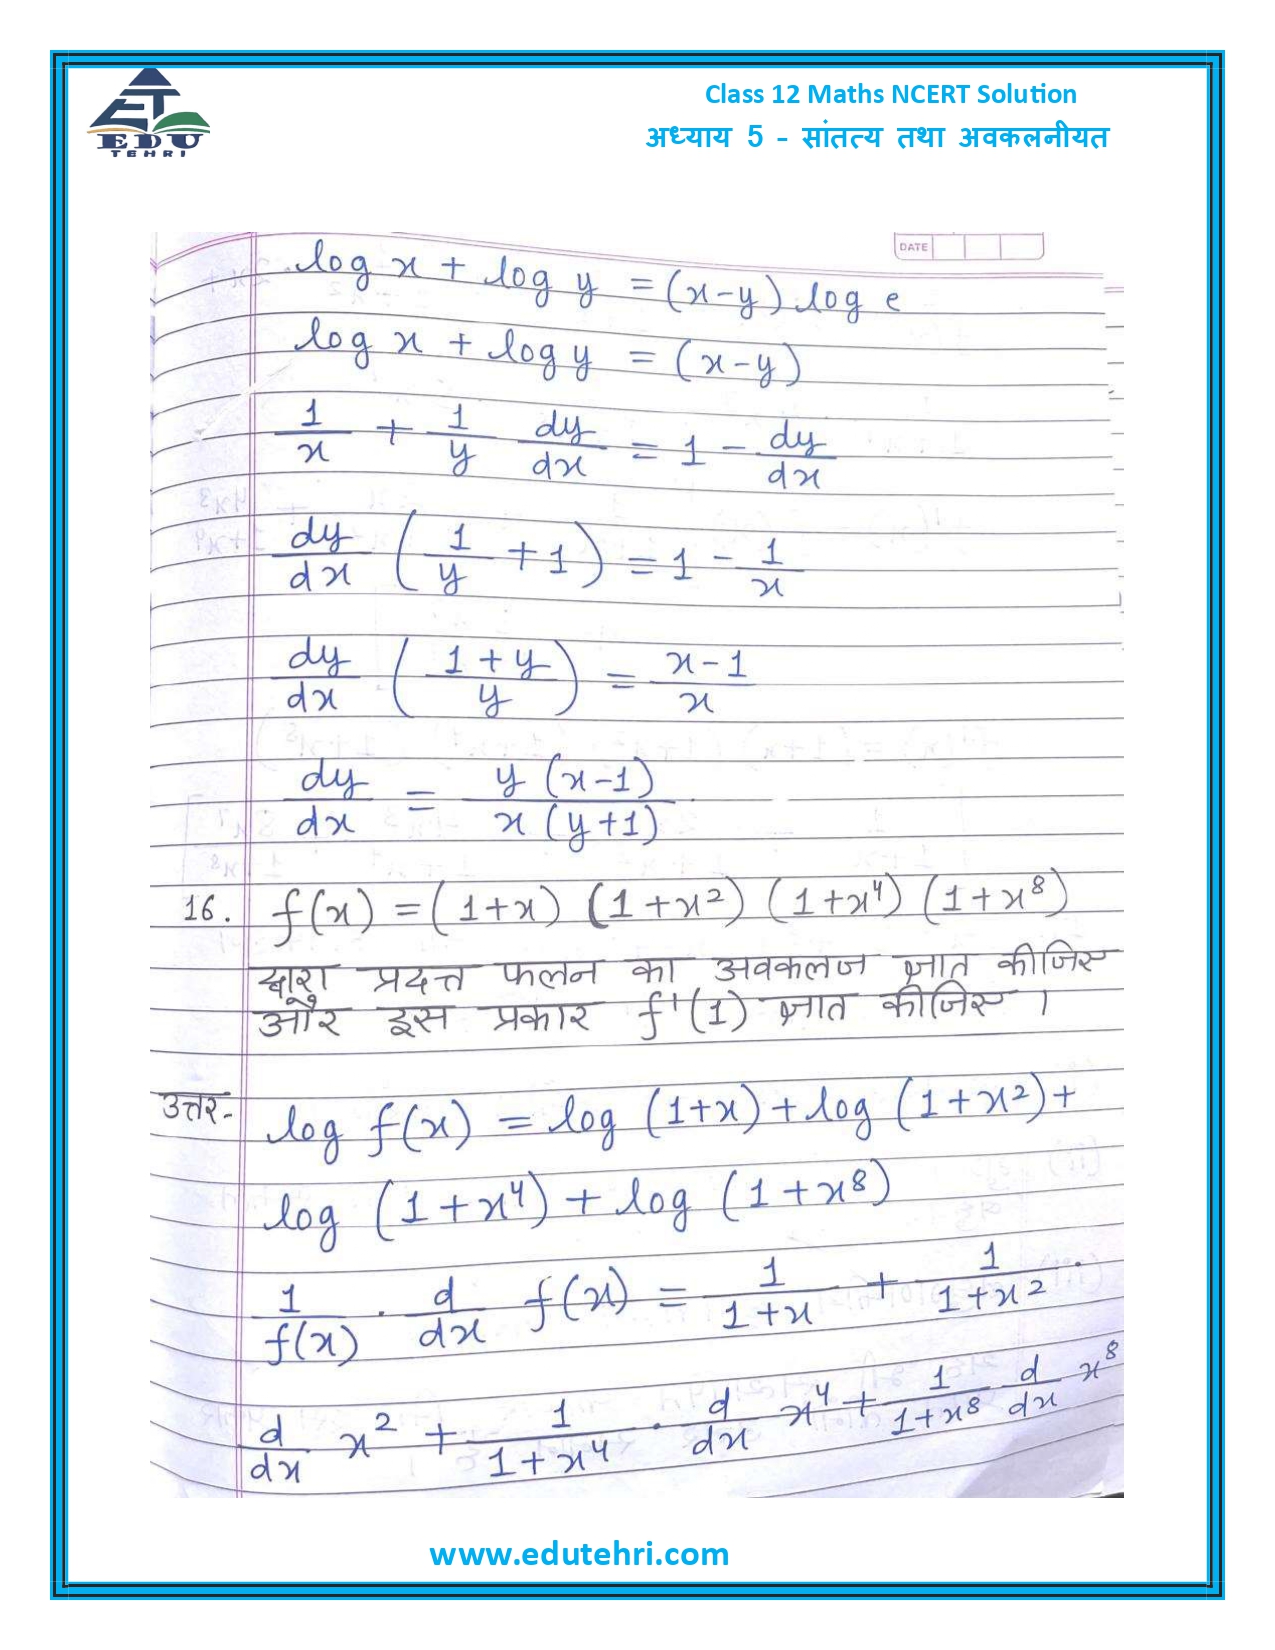 EDU
TEHRI
Class 12 Maths NCERT Solution
अध्याय 5 - सांतत्य तथा अवकलनीयत
DATE
log x + log y = (x-y) log e
log x + log y = (x-y)
1/x + 1/y dy/dx = 1 - dy/dx
dy/dx (1/y + 1) = 1 - 1/x
dy/dx ((1+y)/y) = (x-1)/x
dy/dx = y(x-1)/x(y+1)
16. f(x) = (1+x) (1+x²) (1+x⁴) (1+x⁸)
द्वारा प्रदत्त फलन का अवकलज ज्ञात कीजिए
और इस प्रकार f'(1) ज्ञात कीजिए ।
उत्तर- log f(x) = log (1+x) + log (1+x²) +
log (1+x⁴) + log (1+x⁸)
1/f(x) . d/dx f(x) = 1/(1+x) + 1/(1+x²) .
d/dx x² + 1/(1+x⁴) . d/dx x⁴ + 1/(1+x⁸) d/dx x⁸
www.edutehri.com